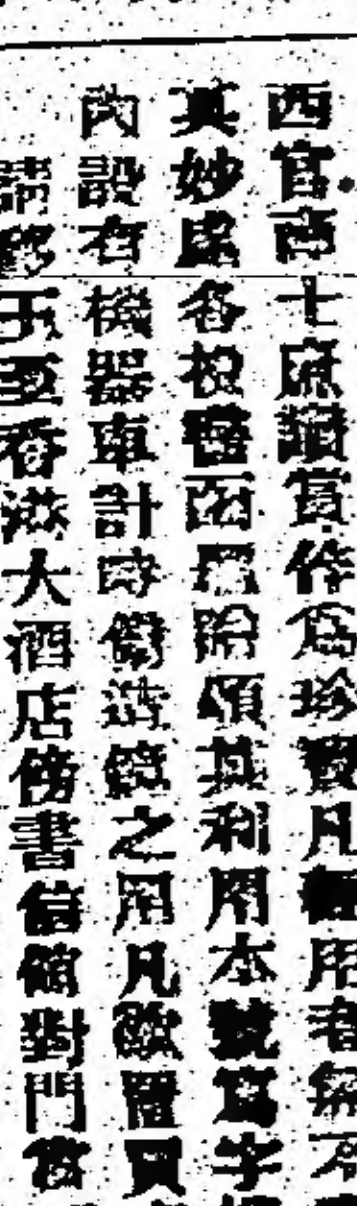 西官商士庶讚賞作為珍寶凡經用者無不
其妙處各報舘函羅除頌其利用本號寫字
內設有機器車計時儆造鏡之用凡欲置買
請移玉至香港大酒店傍書信館對門當